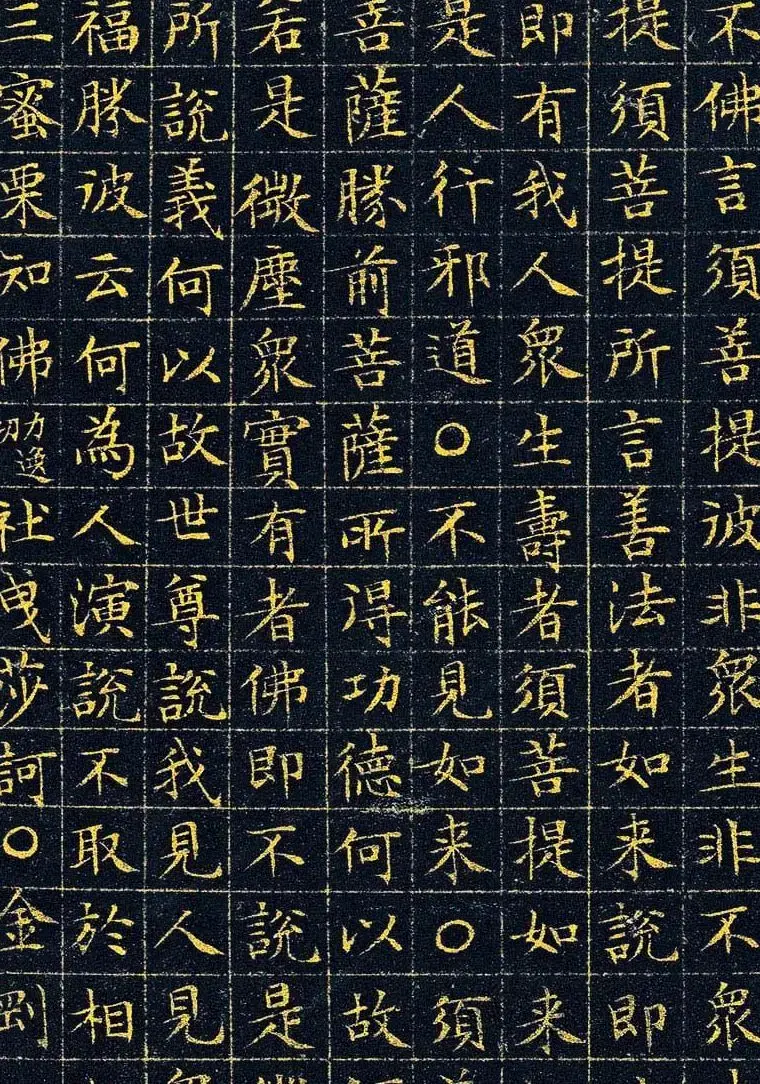 不佛言須菩提彼非眾生非不眾
提須菩提所言善法者如来說即
即有我人眾生壽者須菩提如来
是人行邪道○不能見如来○須
菩薩勝前菩薩所得功德何以故
若是微塵眾實有者佛即不說是
所說義何以故世尊說我見人見
福勝彼云何為人演說不取於相
三蜜栗知佛力逸切祉曳莎訶○金剛